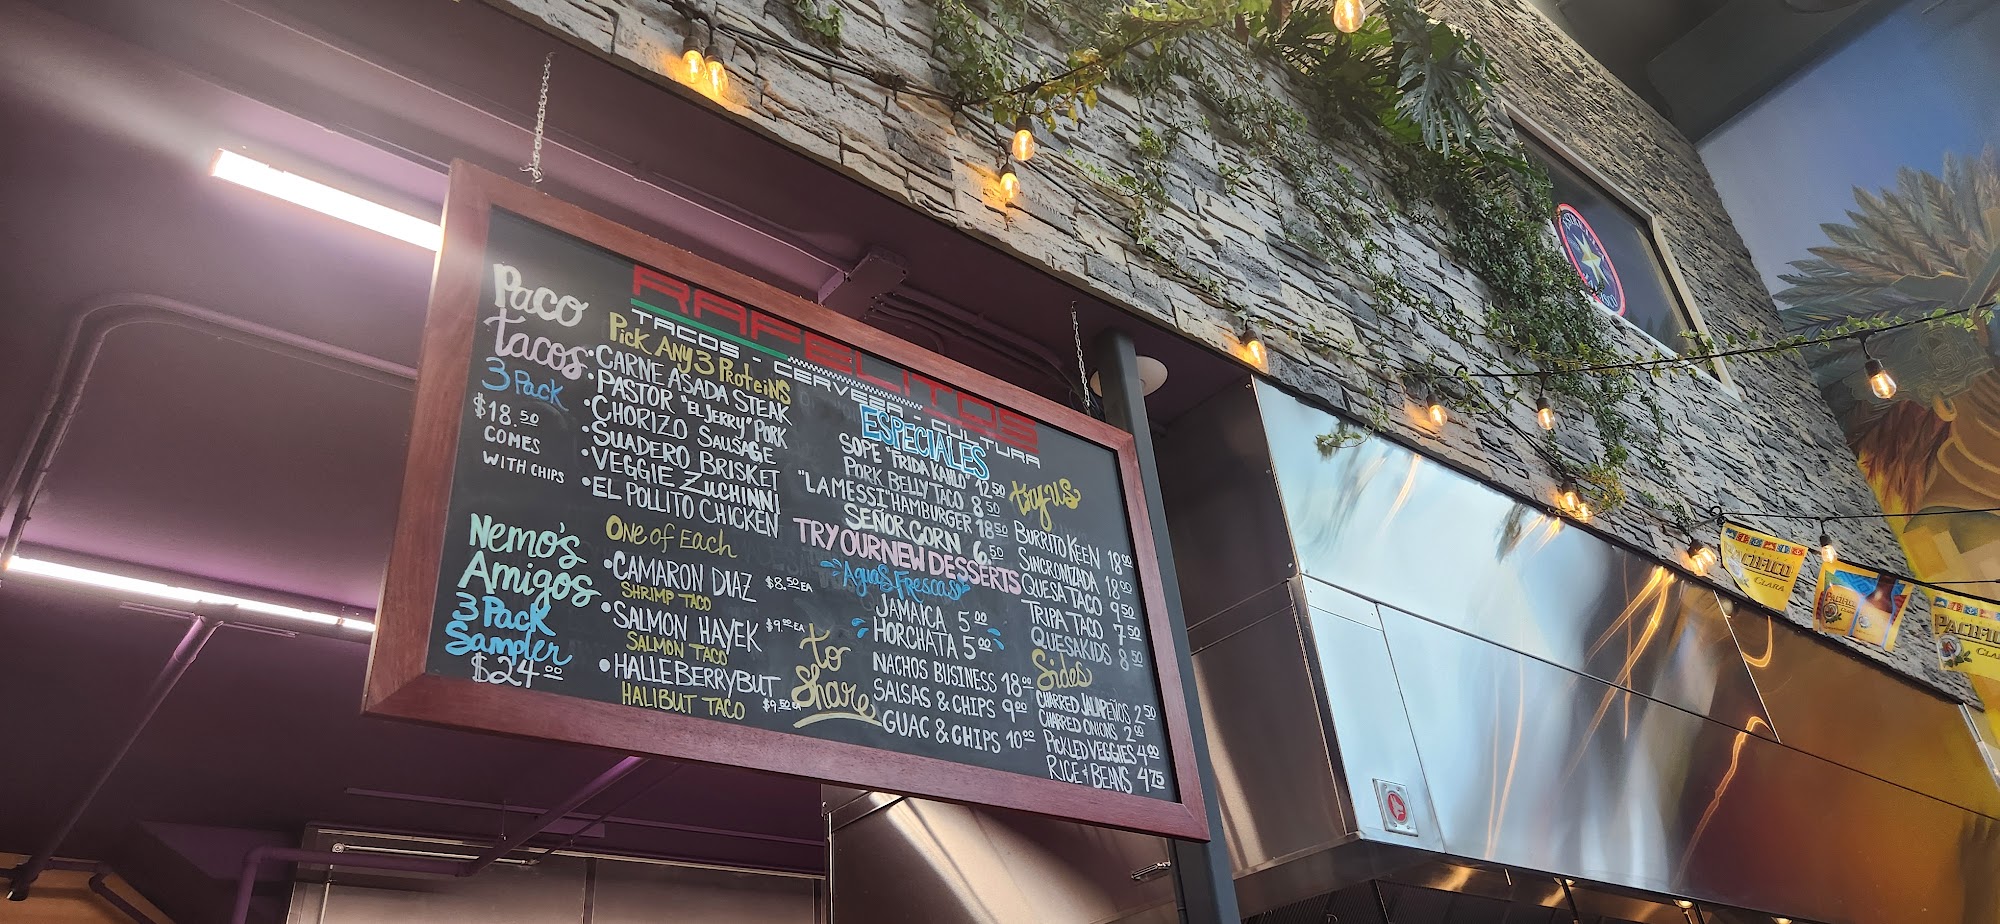 RAFELITOS
TACOS - CERVEZA - CULTURA
Paco
tacos
3 Pack
$18.50
COMES
WITH CHIPS
Pick Any 3 Proteins
• CARNE ASADA STEAK
• PASTOR "EL JERRY" PORK
• CHORIZO SAUSAGE
• SUADERO BRISKET
• VEGGIE ZUCHINNI
• EL POLLITO CHICKEN
Nemo's
Amigos
3 Pack
Sampler
$24.00
One of Each
• CAMARON DIAZ $8.50 EA
SHRIMP TACO
• SALMON HAYEK $9.00 EA
SALMON TACO
• HALLE BERRYBUT
HALIBUT TACO $9.50 EA
ESPECIALES
SOPE "FRIDA KAHLO" 12.50
PORK BELLY TACO 8.50
"LA MESSI" HAMBURGER 18.50
SEÑOR CORN 6.50
TRY OUR NEW DESSERTS
Aguas Frescas
JAMAICA 5.00
HORCHATA 5.00
to
share
NACHOS BUSINESS 18.00
SALSAS & CHIPS 9.00
GUAC & CHIPS 10.00
try us
BURRITO KEEN 18.00
SINCRONIZADA 18.00
QUESA TACO 9.50
TRIPA TACO 7.50
QUESAKIDS 8.50
Sides
CHARRED JALAPEÑOS 2.50
CHARRED ONIONS 2.00
PICKLED VEGGIES 4.00
RICE & BEANS 4.75
PACIFICO
CLARA
PACIFICO
CLARA